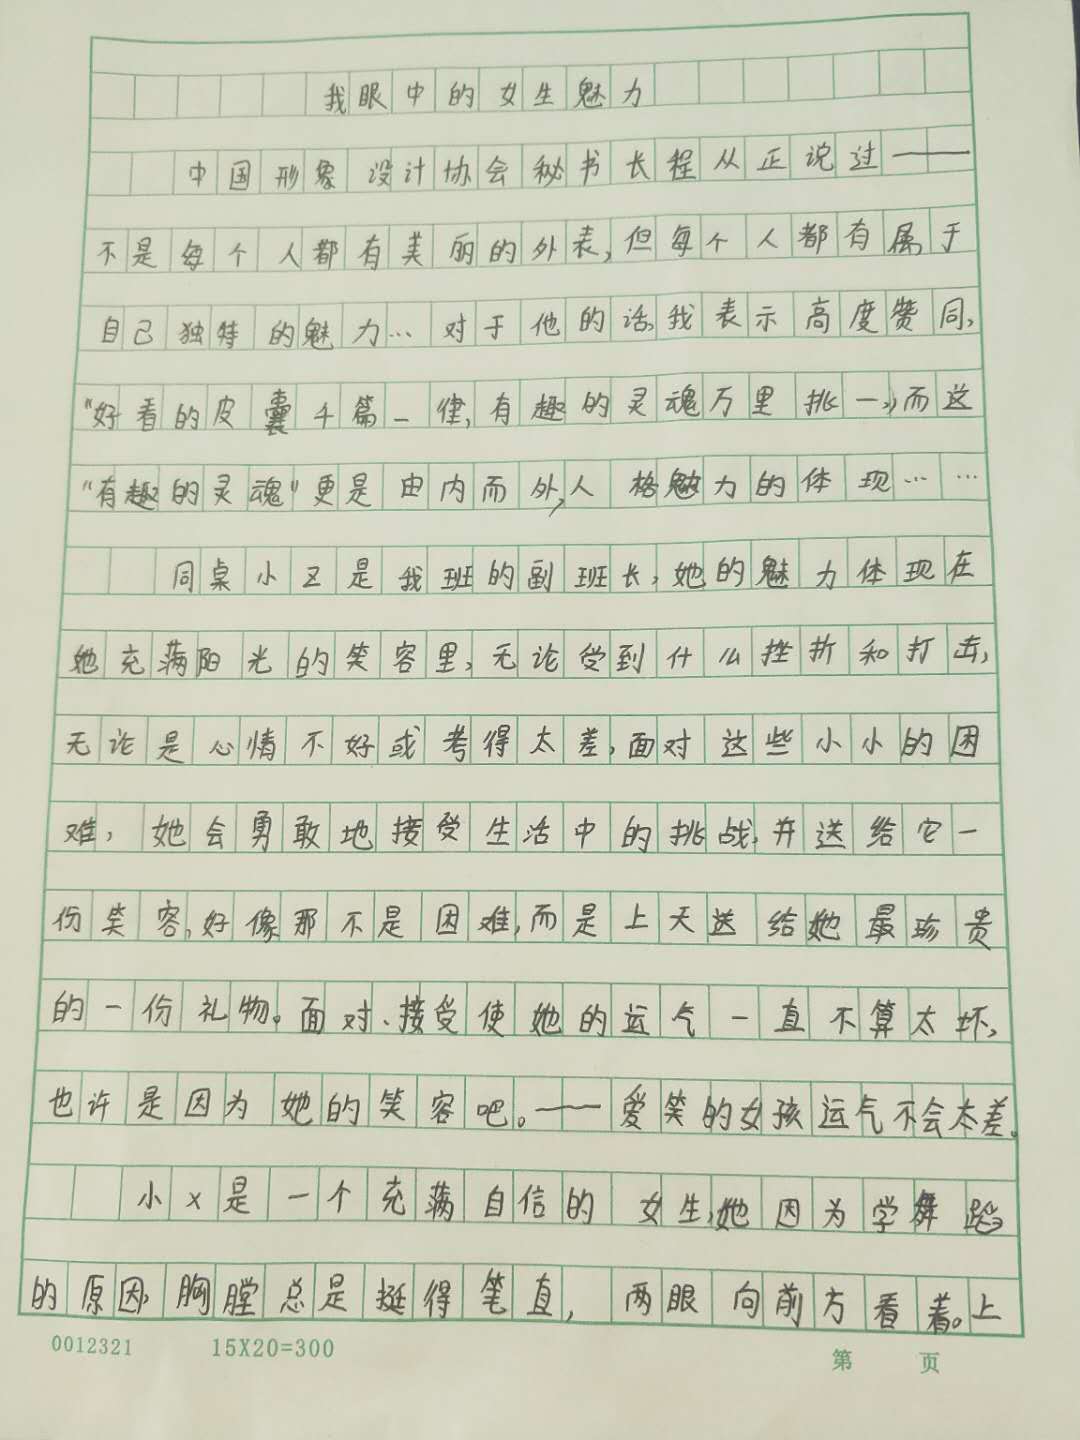 我眼中的女生魅力
中国形象设计协会秘书长程从正说过——
不是每个人都有美丽的外表,但每个人都有属于
自己独特的魅力…对于他的话,我表示高度赞同,
"好看的皮囊千篇一律,有趣的灵魂万里挑一,"而这
"有趣的灵魂"更是由内而外,人格魅力的体现……
同桌小Z是我班的副班长,她的魅力体现在
她充满阳光的笑容里,无论受到什么挫折和打击,
无论是心情不好或考得太差,面对这些小小的困
难,她会勇敢地接受生活中的挑战,并送给它一
份笑容,好像那不是困难,而是上天送给她最珍贵
的一份礼物。面对、接受使她的运气一直不算太坏,
也许是因为她的笑容吧。——爱笑的女孩运气不会太差。
小x是一个充满自信的女生,她因为学舞蹈
的原因,胸膛总是挺得笔直,两眼向前方看着。上
0012321 15X20=300 第 页